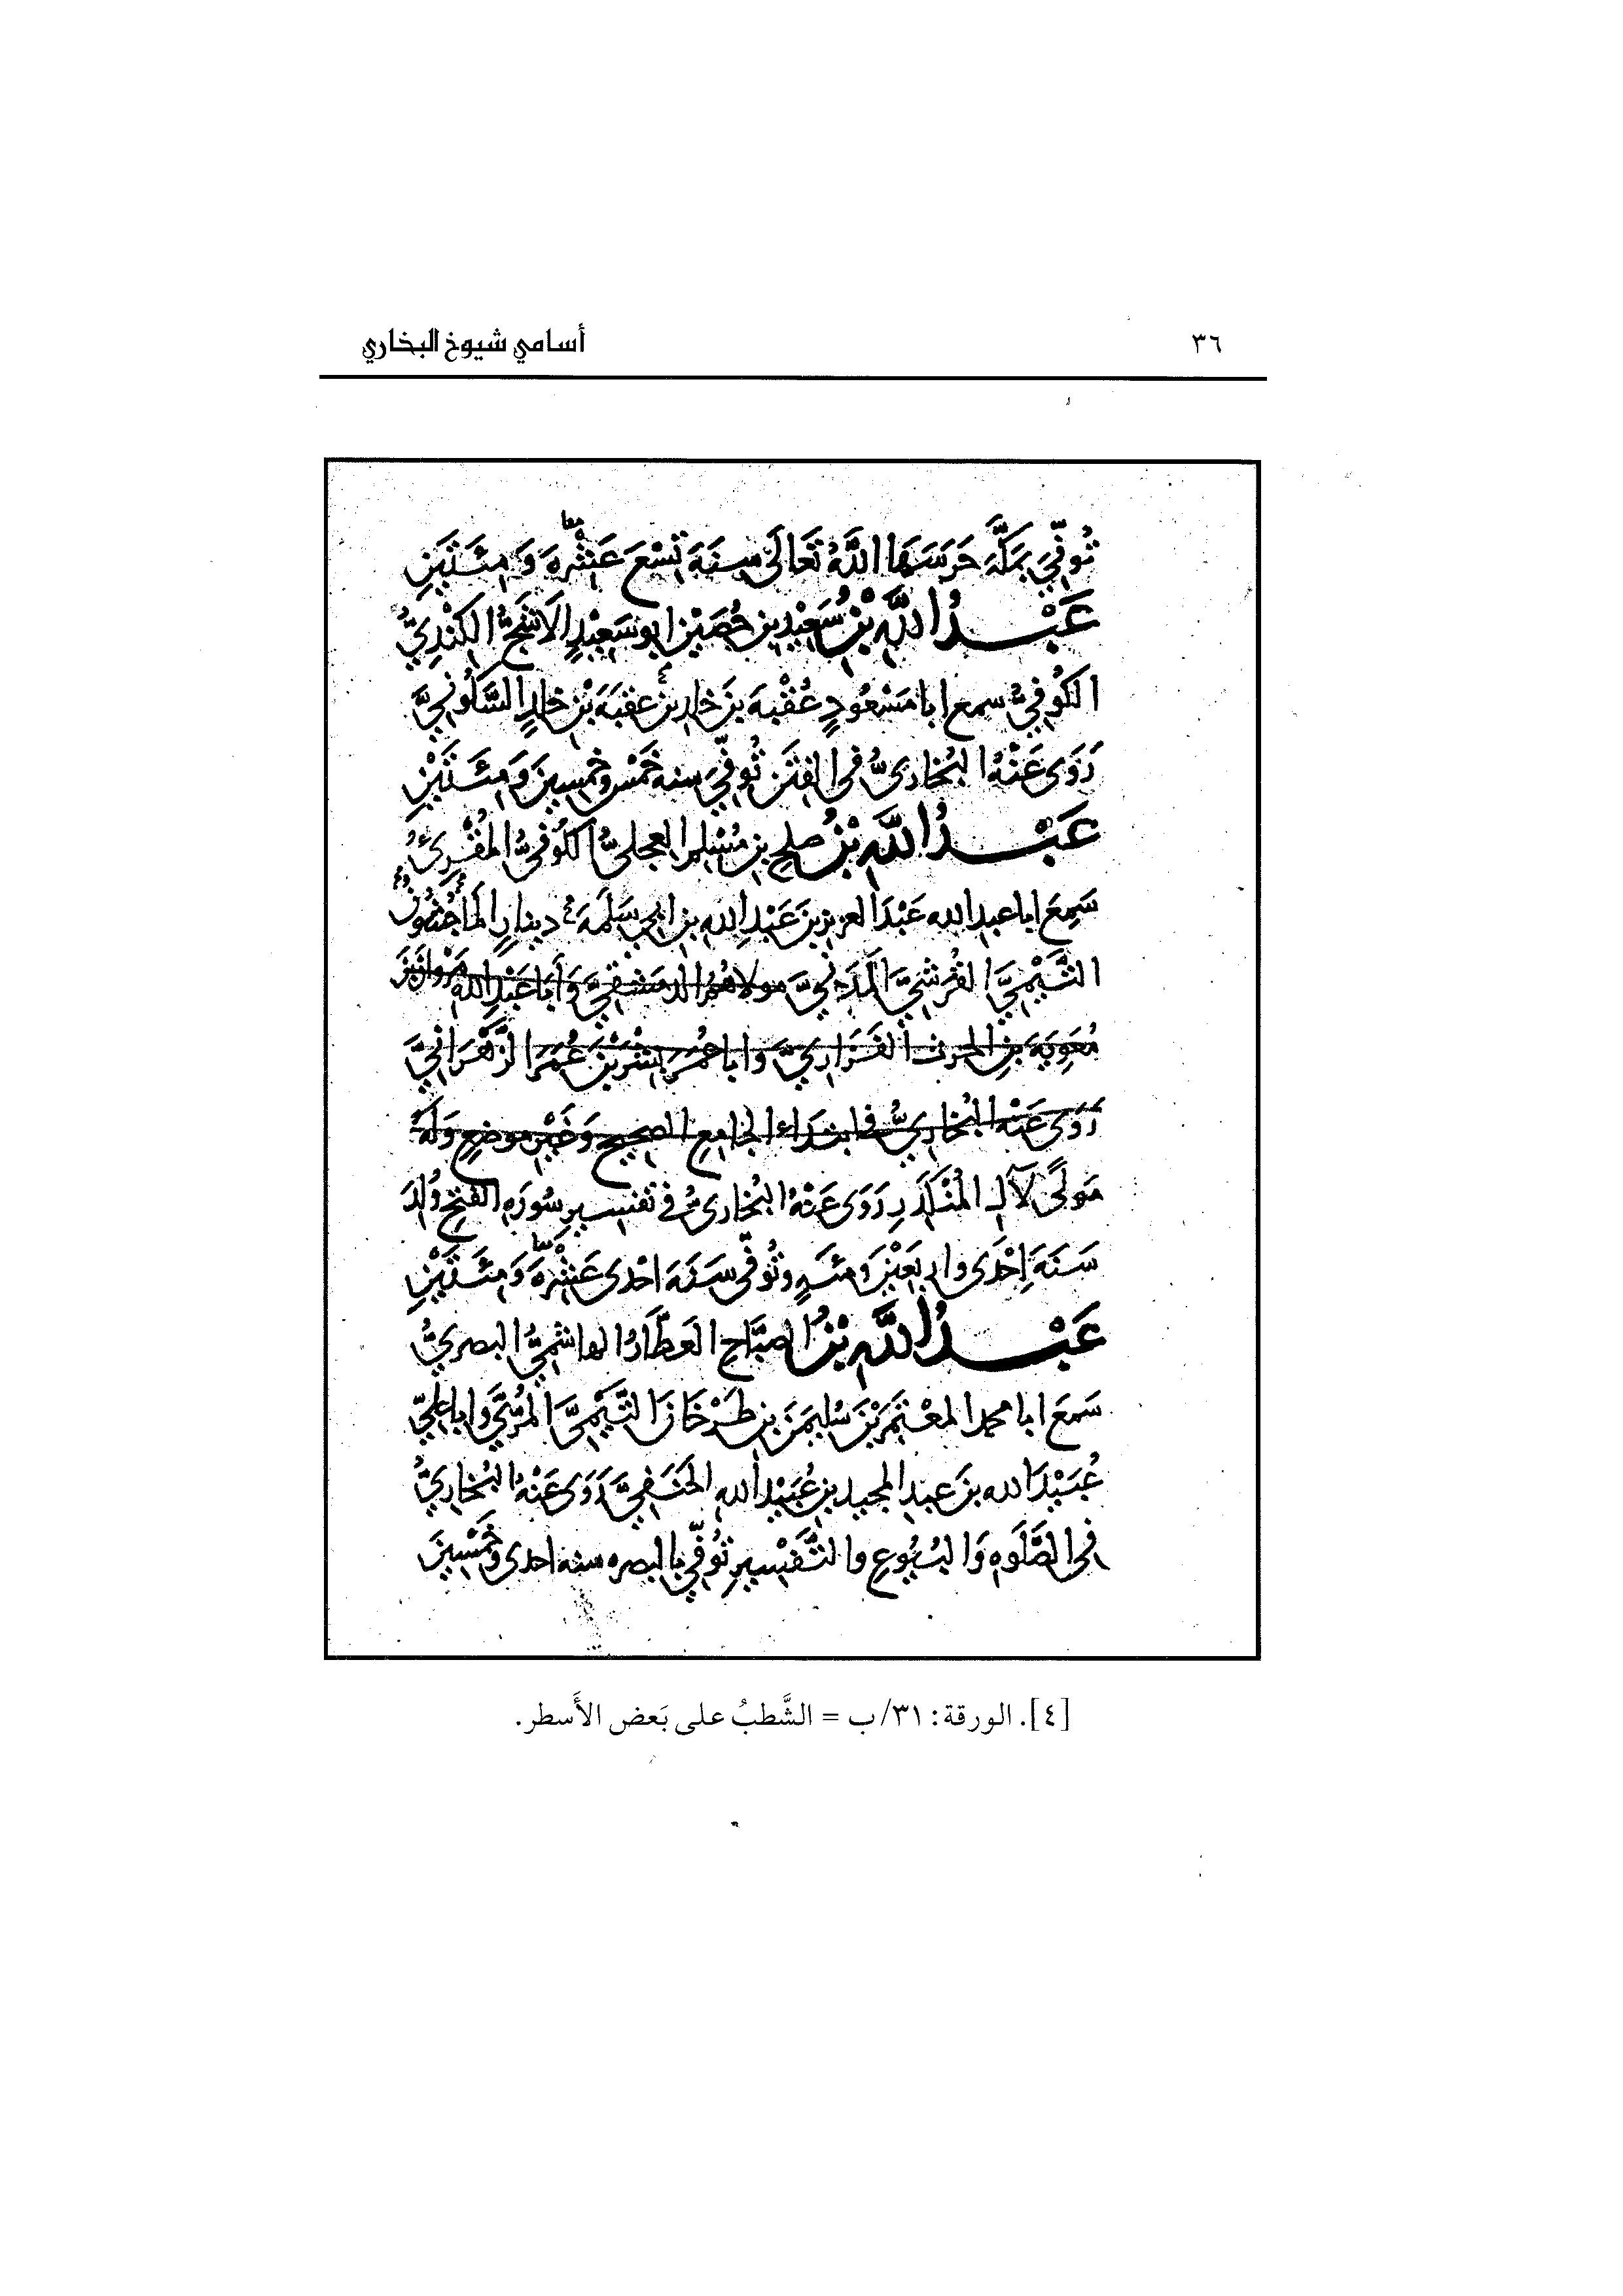 ٣٦
أسامي شيوخ البخاري
تُوُفِّيَ بمَكَّةَ حَرَسَهَا اللَّهُ تَعَالَى سنَةَ تِسْعَ عَشْرَه وَمِئَتَينِ
عَبْدُ اللَّهِ بْنُ سُعَيْدِ بن حُصَيْن ابو سَعِيْدٍ الاَشَجُّ الكِنْدِيُّ
الكُوفِيُّ سمع ابا مَسْعُودٍ عُقْبَةَ بنَ خالد بن عقبَةَ بْنِ خالدٍ السَّكُونيَّ
رَوَى عَنْهُ البُخَارِيُّ في الفِتَن تُوفِّيَ سنه خَمْس وخَمسينَ وَمِئَتَيْنِ
عَبْدُ اللَّهِ بْنُ صلح بن مُسْلم العجليُّ الكُوفيُّ المقْرِئُ
سَمِعَ ابا عبد الله عَبْدَ العزيز بنَ عَبْدِ الله بن ابي سَلَمَةَ دينارٍ الماجُشُونَ
التَّيْمِيَّ القُرَشيَّ المَدَنيَّ مولاهُمُ الدمَشقيَّ وَأبا عَبْدِ اللهِ مَرْوانَ بنَ
مُعَوِيَةَ بنِ الحرث الفَزَاريَّ وابا محمد بِشْرَ بْنَ عُمَرَ الزَّهْرَانيَّ
رَوَى عَنْهُ البُخَاريُّ في ابتداء الجامع الصحيح وَغَيْرِ موضعٍ وَلَهُ
مَولًى لآلِ المُنْكَدِرِ رَوَى عَنْهُ البُخَاريُّ في تفسير سُورَهِ الفَتْحِ وُلدَ
سَنَةَ اِحْدَى واربَعينَ ومئَةٍ وتُوفِّيَ سَنَةَ احْدى عَشْرَهَ وَمِئَتَيْنِ
عَبْدُ اللَّهِ بْنُ الصبَّاحِ العَطَّارُ الهاشميُّ البصريُّ
سَمعَ ابا محمد المعْتَمِرَ بْنَ سُليمَنَ بن طَرْخَانَ التَّيْمِيَّ المُرِّيَّ وابا عليّ
عُبَيْدَ الله بنَ عبد المجيد بن عُبَيْدِ الله الحَنَفيَّ رَوَى عَنْهُ البُخَاريُّ
في الصَّلَوه وَالبُيُوعِ والتَّفسْيرِ تُوُفِّي بالبصره سنه احدى وخَمْسينَ
[٤]. الورقة: ٣١/ب = الشَّطبُ على بَعض الأَسطر.